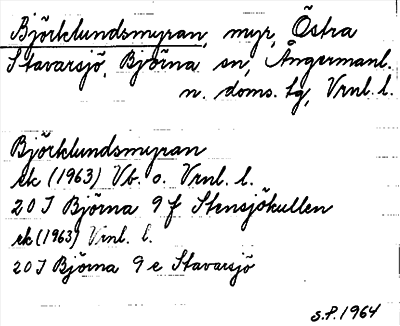 Björklundsmyran, myr, Östra
Stavarsjö, Björna sn, Ångermanl.
n. doms. tg, Vrnl. l.
Björklundsmyran
ek (1963) Vb. o. Vrnl. l.
20 I Björna 9 f Stensjökullen
ek (1963) Vrnl. l.
20 I Björna 9 e Stavarsjö
S.P. 1964